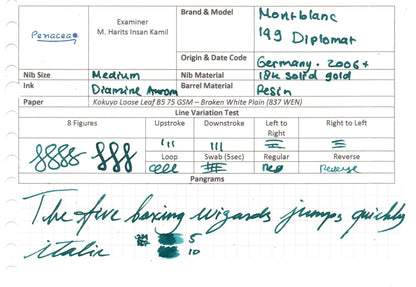 Penaceae
Examiner
M. Harits Insan Kamil
Brand & Model
Montblanc
149 Diplomat
Origin & Date Code
Germany. 2006+
Nib Size
Medium
Nib Material
18k solid gold
Ink
Diamine Aurora
Barrel Material
Resin
Paper
Kokuyo Loose Leaf B5 75 GSM – Broken White Plain (837 WEN)
Line Variation Test
8 Figures
Upstroke
Downstroke
Left to Right
Right to Left
Loop
Swab (5sec)
Regular
Reverse
Reverse
Pangrams
The five boxing wizards jumps quickly
italic
5
10